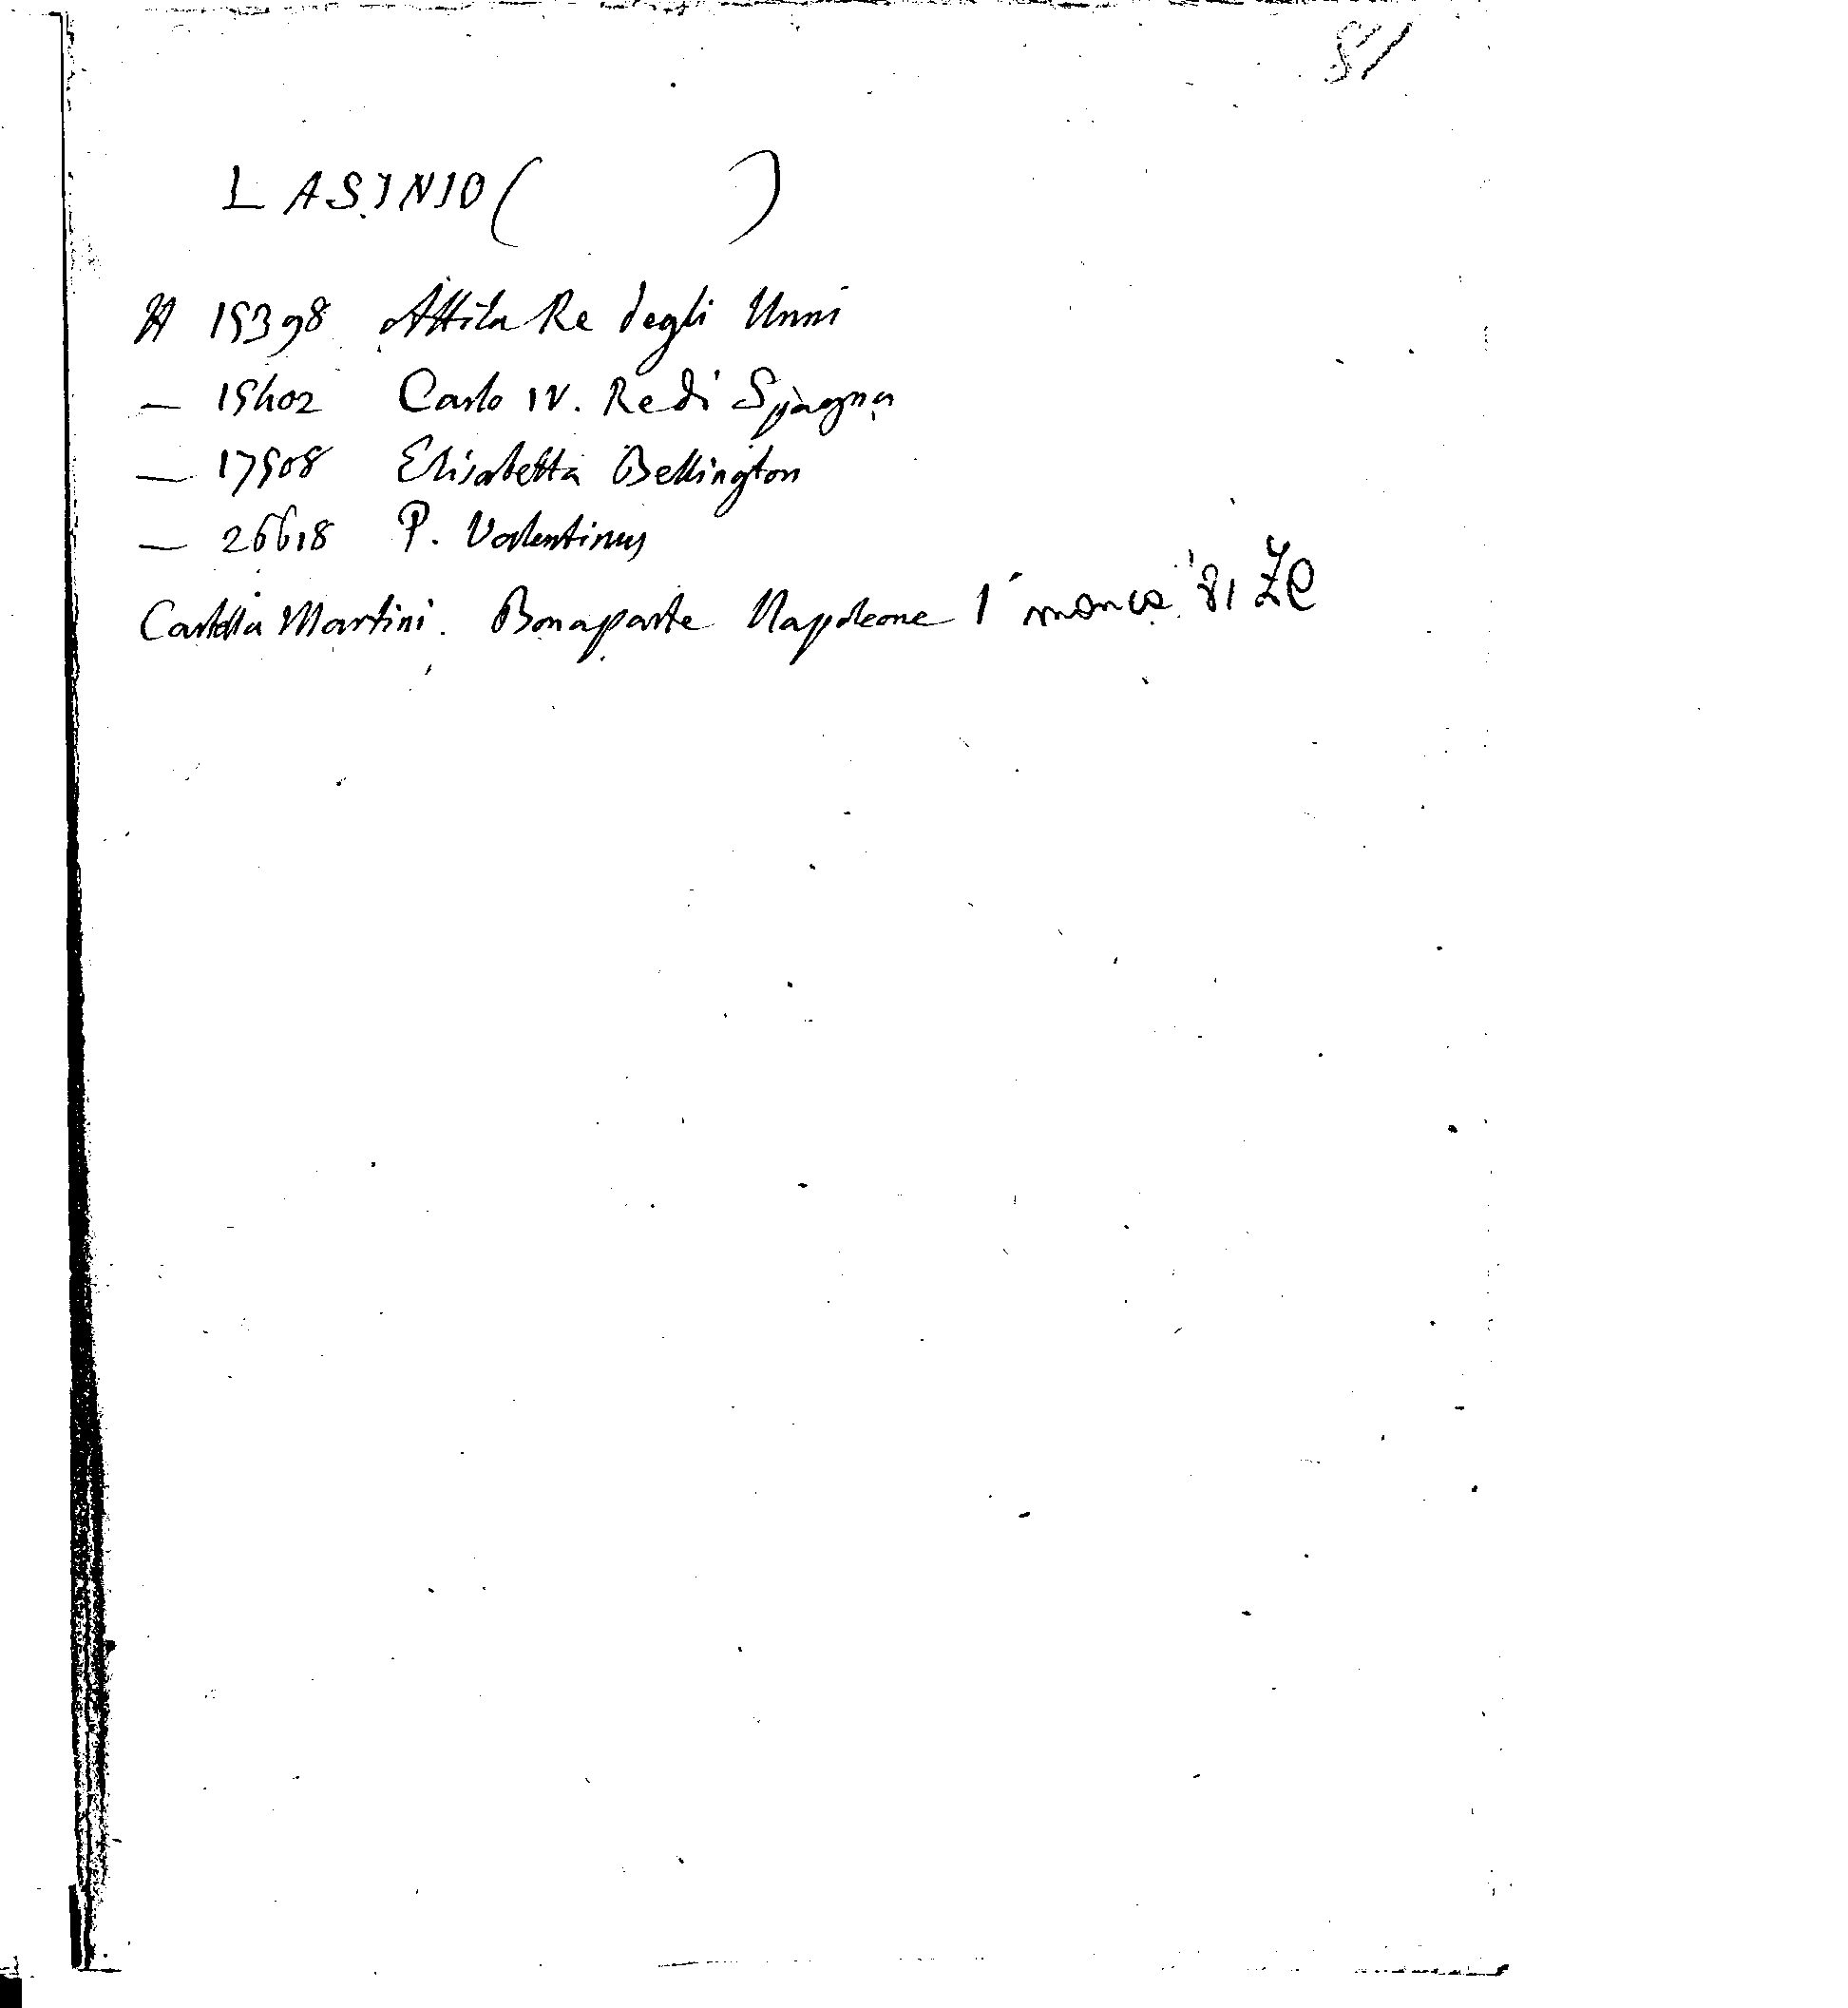 81
LASINIO ( )
A 15398 Attila Re degli Unni
— 15402 Carlo IV. Re di Spagna
— 17508 Elisabetta Bellington
— 26618 P. Valentinus
Cartella Martini. Bonaparte Napoleone I° manca '81 ZC